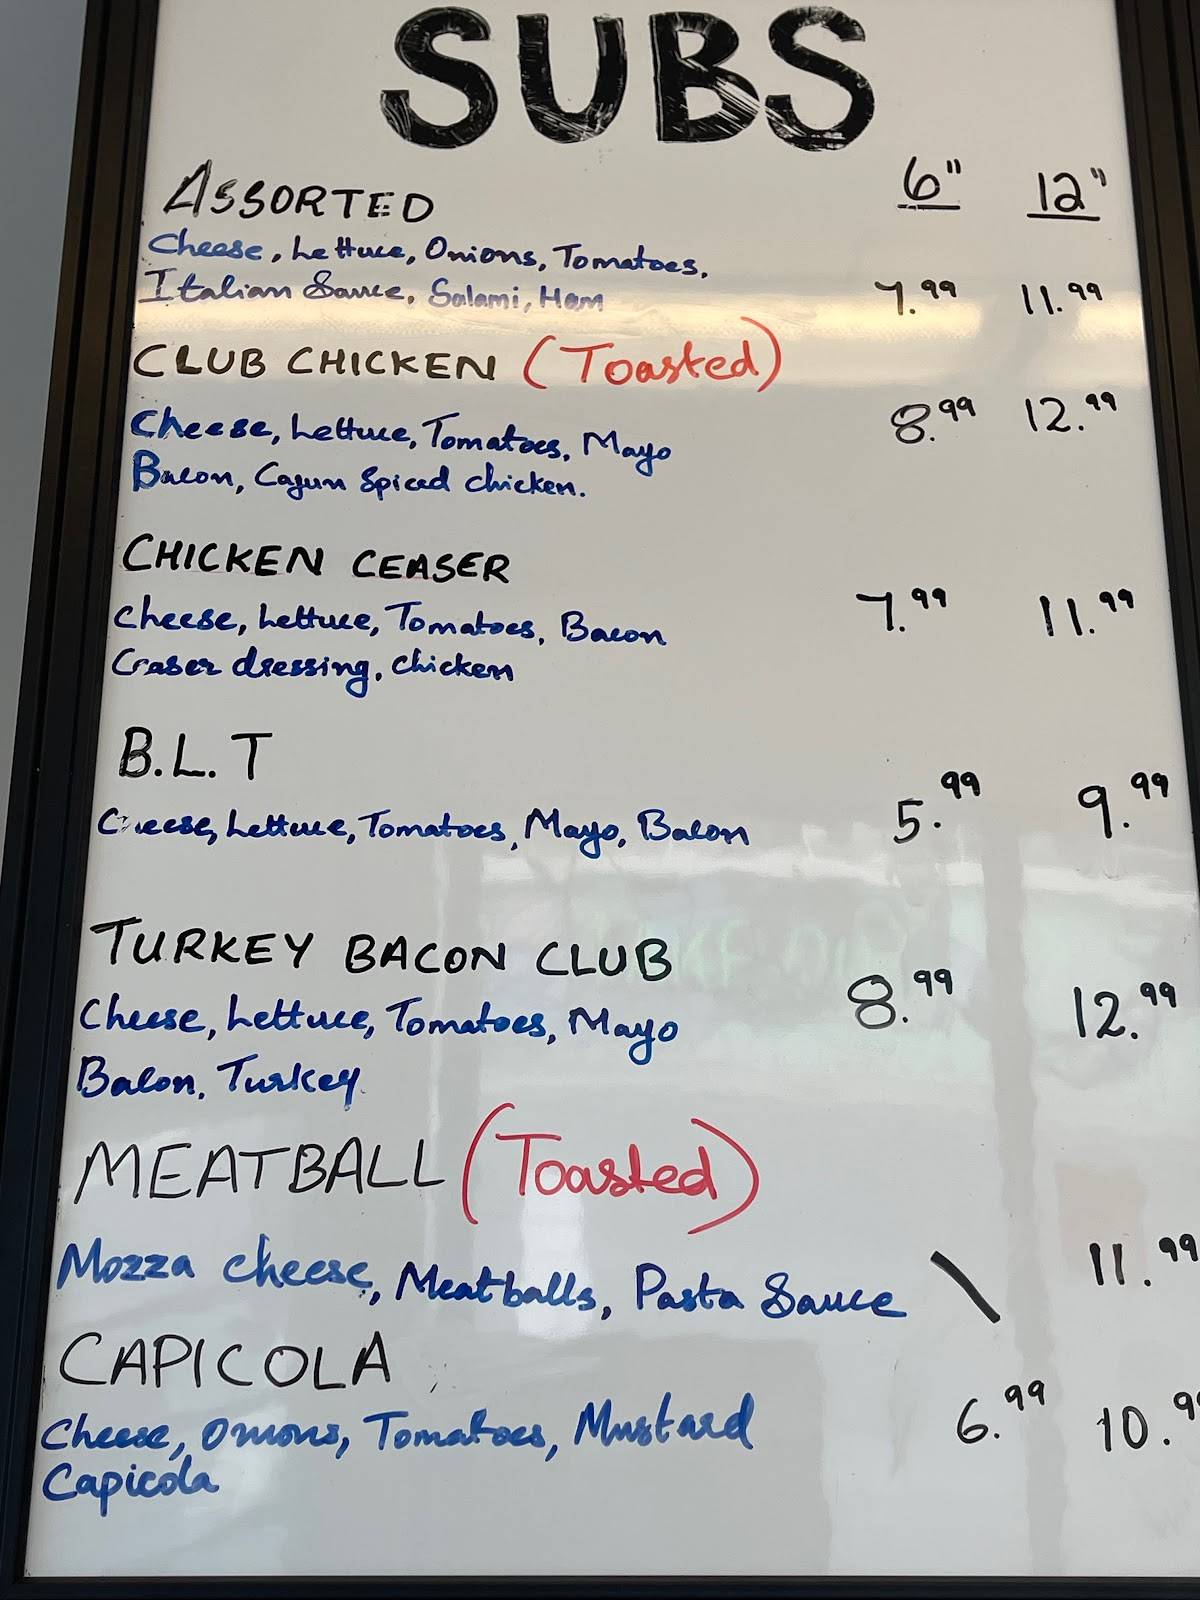 SUBS
6" 12"
ASSORTED
Cheese, Lettuce, Onions, Tomatoes,
Italian Sauce, Salami, Ham 7.99 11.99
CLUB CHICKEN (Toasted)
Cheese, Lettuce, Tomatoes, Mayo 8.99 12.99
Bacon, Cajun Spiced chicken.
CHICKEN CEASER
Cheese, Lettuce, Tomatoes, Bacon 7.99 11.99
Ceaser dressing, chicken
B.L.T
Cheese, Lettuce, Tomatoes, Mayo, Bacon 5.99 9.99
TURKEY BACON CLUB
Cheese, Lettuce, Tomatoes, Mayo 8.99 12.99
Bacon, Turkey
MEATBALL (Toasted)
Mozza cheese, Meatballs, Pasta Sauce \ 11.99
CAPICOLA
Cheese, Onions, Tomatoes, Mustard 6.99 10.99
Capicola